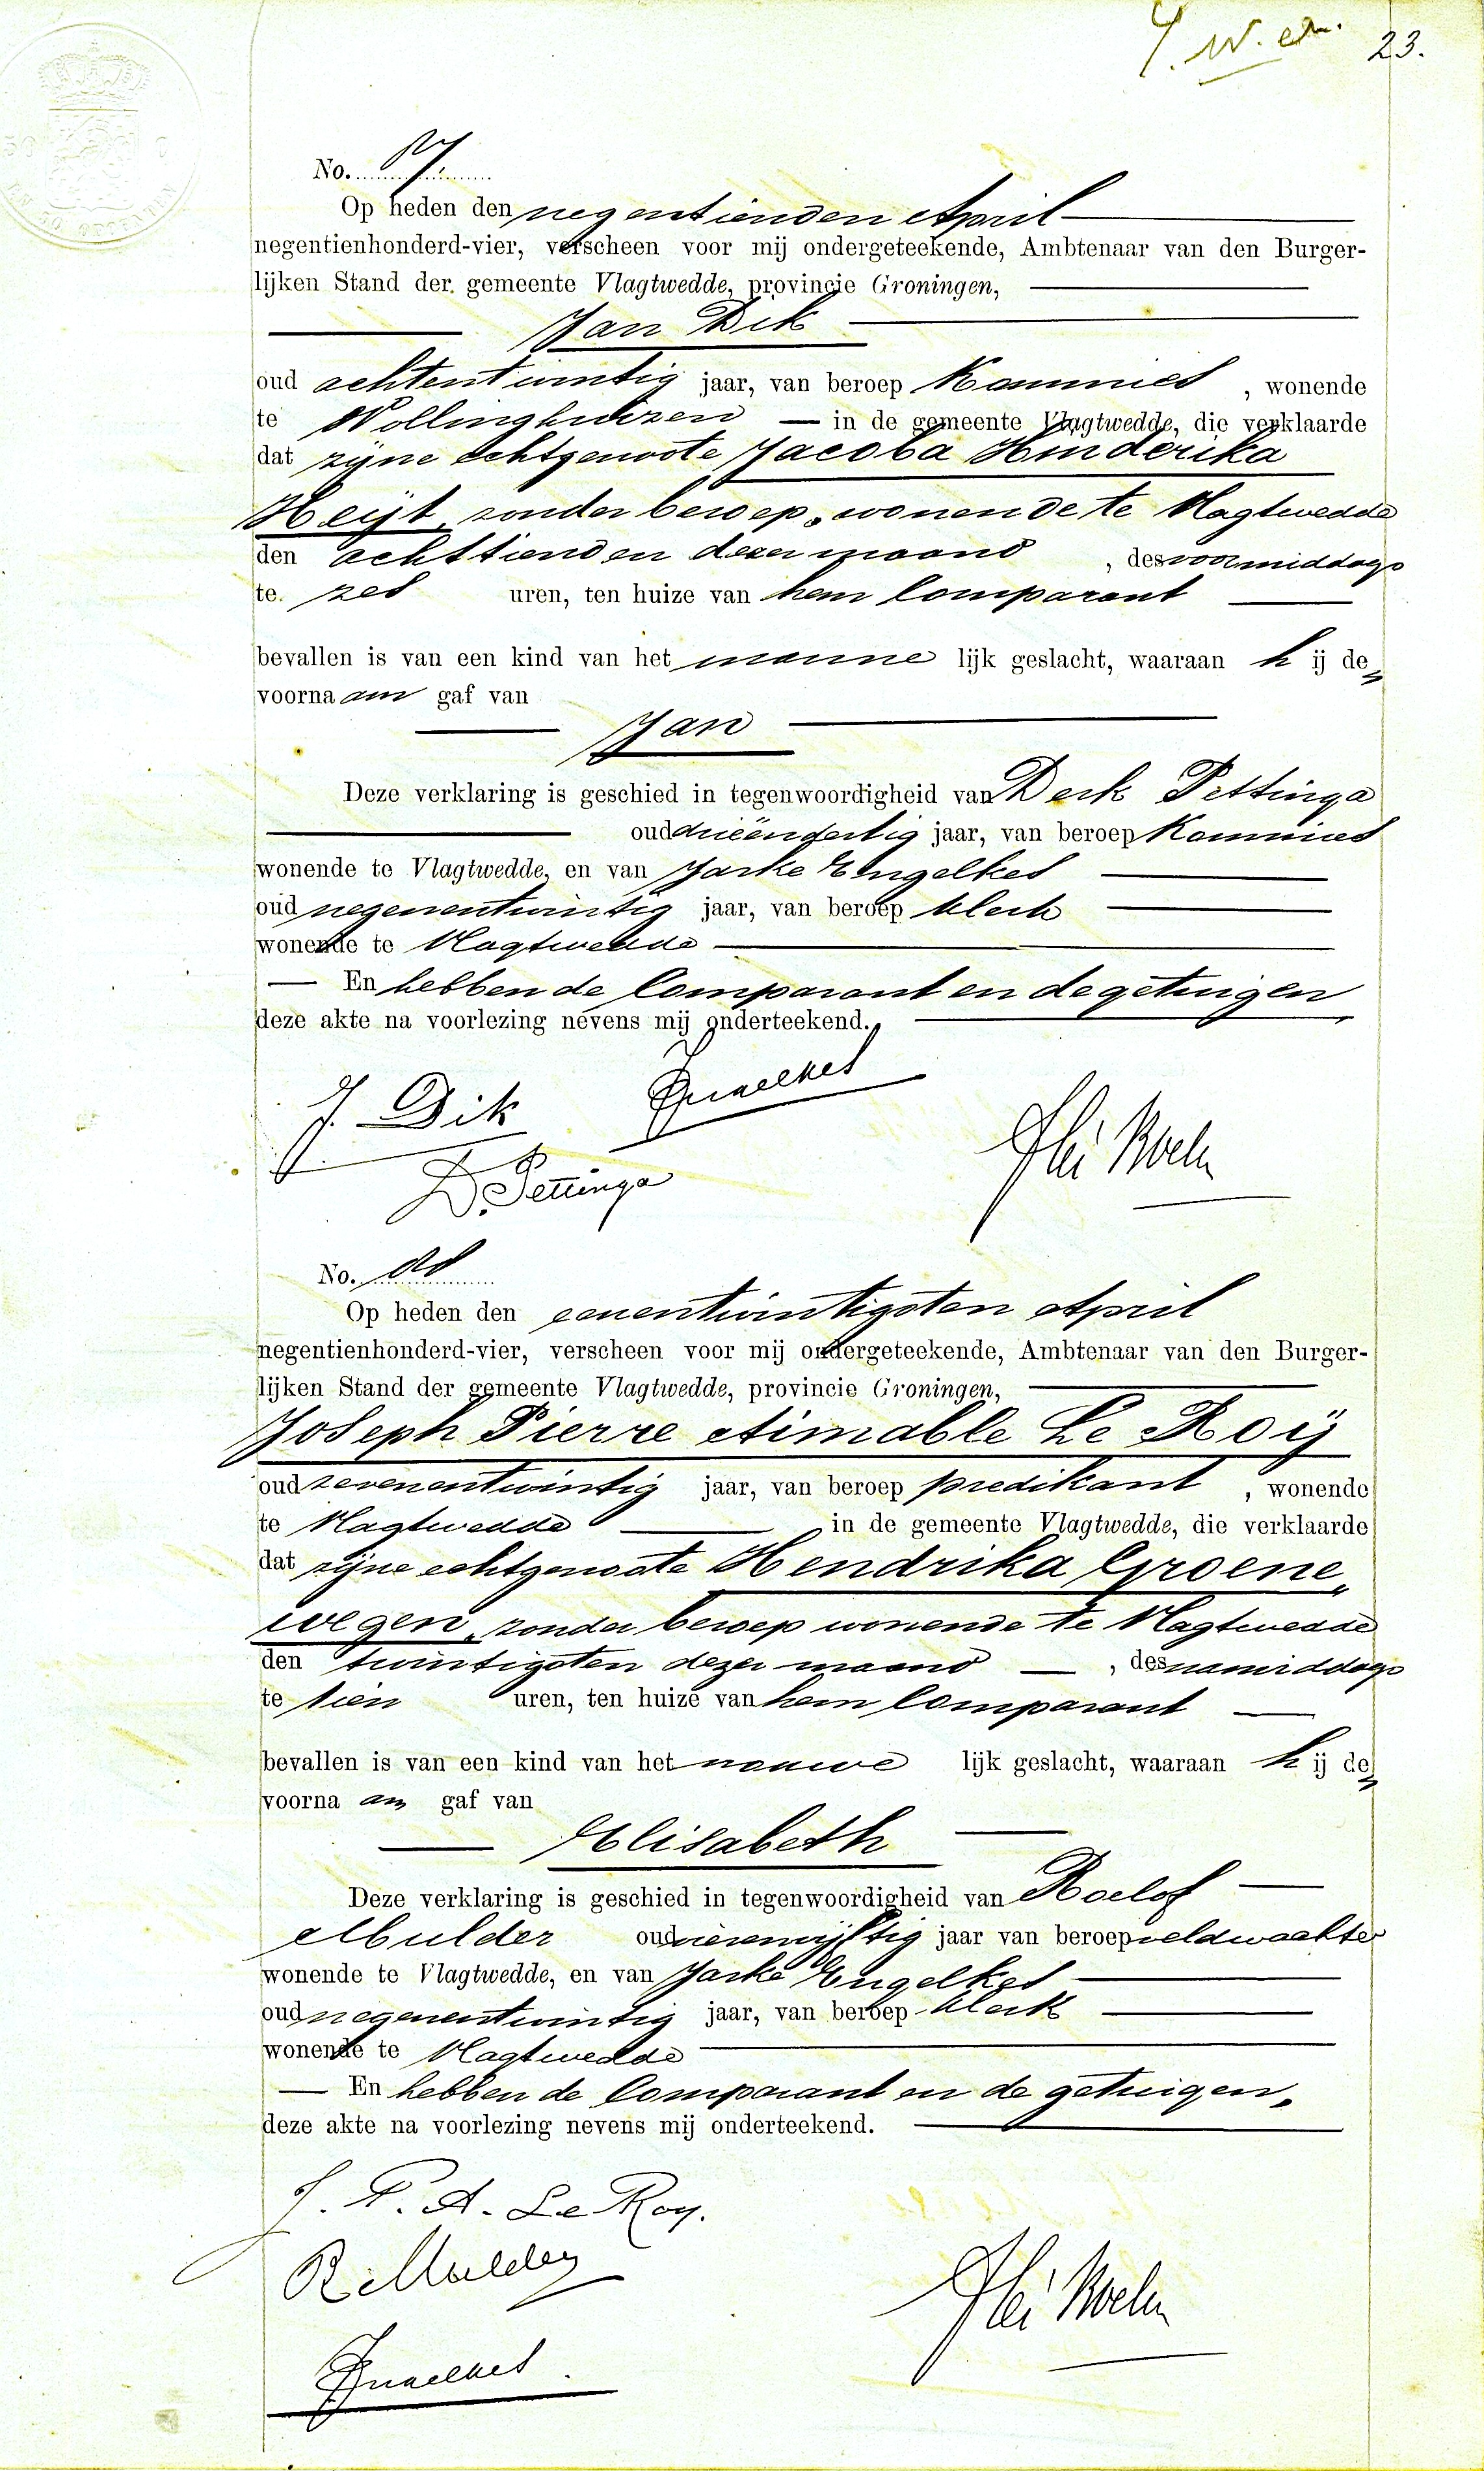 23.
No.
Op heden den negentienden April
negentienhonderd-vier, verscheen voor mij ondergeteekende, Ambtenaar van den Burger-
lijken Stand der gemeente Vlagtwedde, provincie Groningen,
Jan Dik
oud achtentwintig jaar, van beroep Kommies, wonende
te Wollinghuizen in de gemeente Vlagtwedde, die verklaarde
dat zijne echtgenoote Jacoba Hinderika
Heijt, zonder beroep, wonende te Vlagtwedde
den achttienden dezer maand, des voormiddags
te zes uren, ten huize van hem Comparant
bevallen is van een kind van het mannelijk geslacht, waaraan hij de
voornaam gaf van
Jan
Deze verklaring is geschied in tegenwoordigheid van Derk Pettinga
oud drieëndertig jaar, van beroep Kommies
wonende te Vlagtwedde, en van Jarke Engelkes
oud negenentwintig jaar, van beroep klerk
wonende te Vlagtwedde
En hebben de Comparant en de getuigen
deze akte na voorlezing nevens mij onderteekend.
J. Dik Engelkes
D. Pettinga
No.
Op heden den eenentwintigsten April
negentienhonderd-vier, verscheen voor mij ondergeteekende, Ambtenaar van den Burger-
lijken Stand der gemeente Vlagtwedde, provincie Groningen,
Joseph Pierre Aimable Le Roij
oud zevenentwintig jaar, van beroep predikant, wonende
te Vlagtwedde in de gemeente Vlagtwedde, die verklaarde
dat zijne echtgenoote Hendrika Groene„
wegen, zonder beroep wonende te Vlagtwedde
den twintigsten dezer maand, des namiddags
te tien uren, ten huize van hem Comparant
bevallen is van een kind van het vrouwelijk geslacht, waaraan hij de
voornaam gaf van
Elisabeth
Deze verklaring is geschied in tegenwoordigheid van Roelof
Mulder oud vierenvijftig jaar van beroep veldwachter
wonende te Vlagtwedde, en van Jarke Engelkes
oud negenentwintig jaar, van beroep klerk
wonende te Vlagtwedde
En hebben de Comparant en de getuigen„
deze akte na voorlezing nevens mij onderteekend.
J. P. A. Le Roy.
R. Mulder
Engelkes.